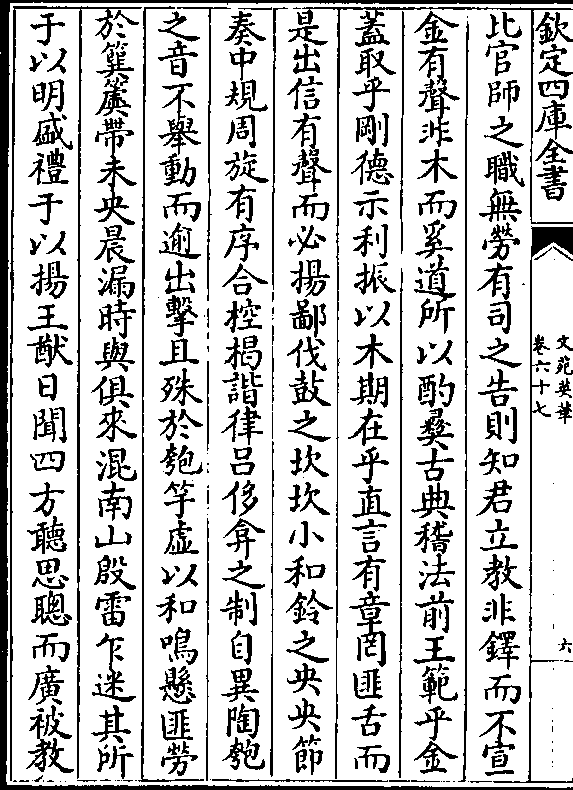 欽定四庫全書
文苑英華
卷六十七
六
比官師之職無勞有司之告則知君立教非鐸而不宣
金有聲非木而奚道所以酌彜古典稽法前王範乎金
蓋取乎剛德示利振以木期在乎直言有章罔匪舌而
是出信有聲而必揚鄙伐鼓之坎坎小和鈴之央央節
奏中規周旋有序合椌楬諧律呂侈弇之制自異陶匏
之音不舉動而逾出擊且殊於匏竽虛以和鳴懸匪勞
於簨簴帶未央晨漏時與俱來混南山殷雷乍迷其所
于以明盛禮于以揚王猷日聞四方聽思聰而廣被教